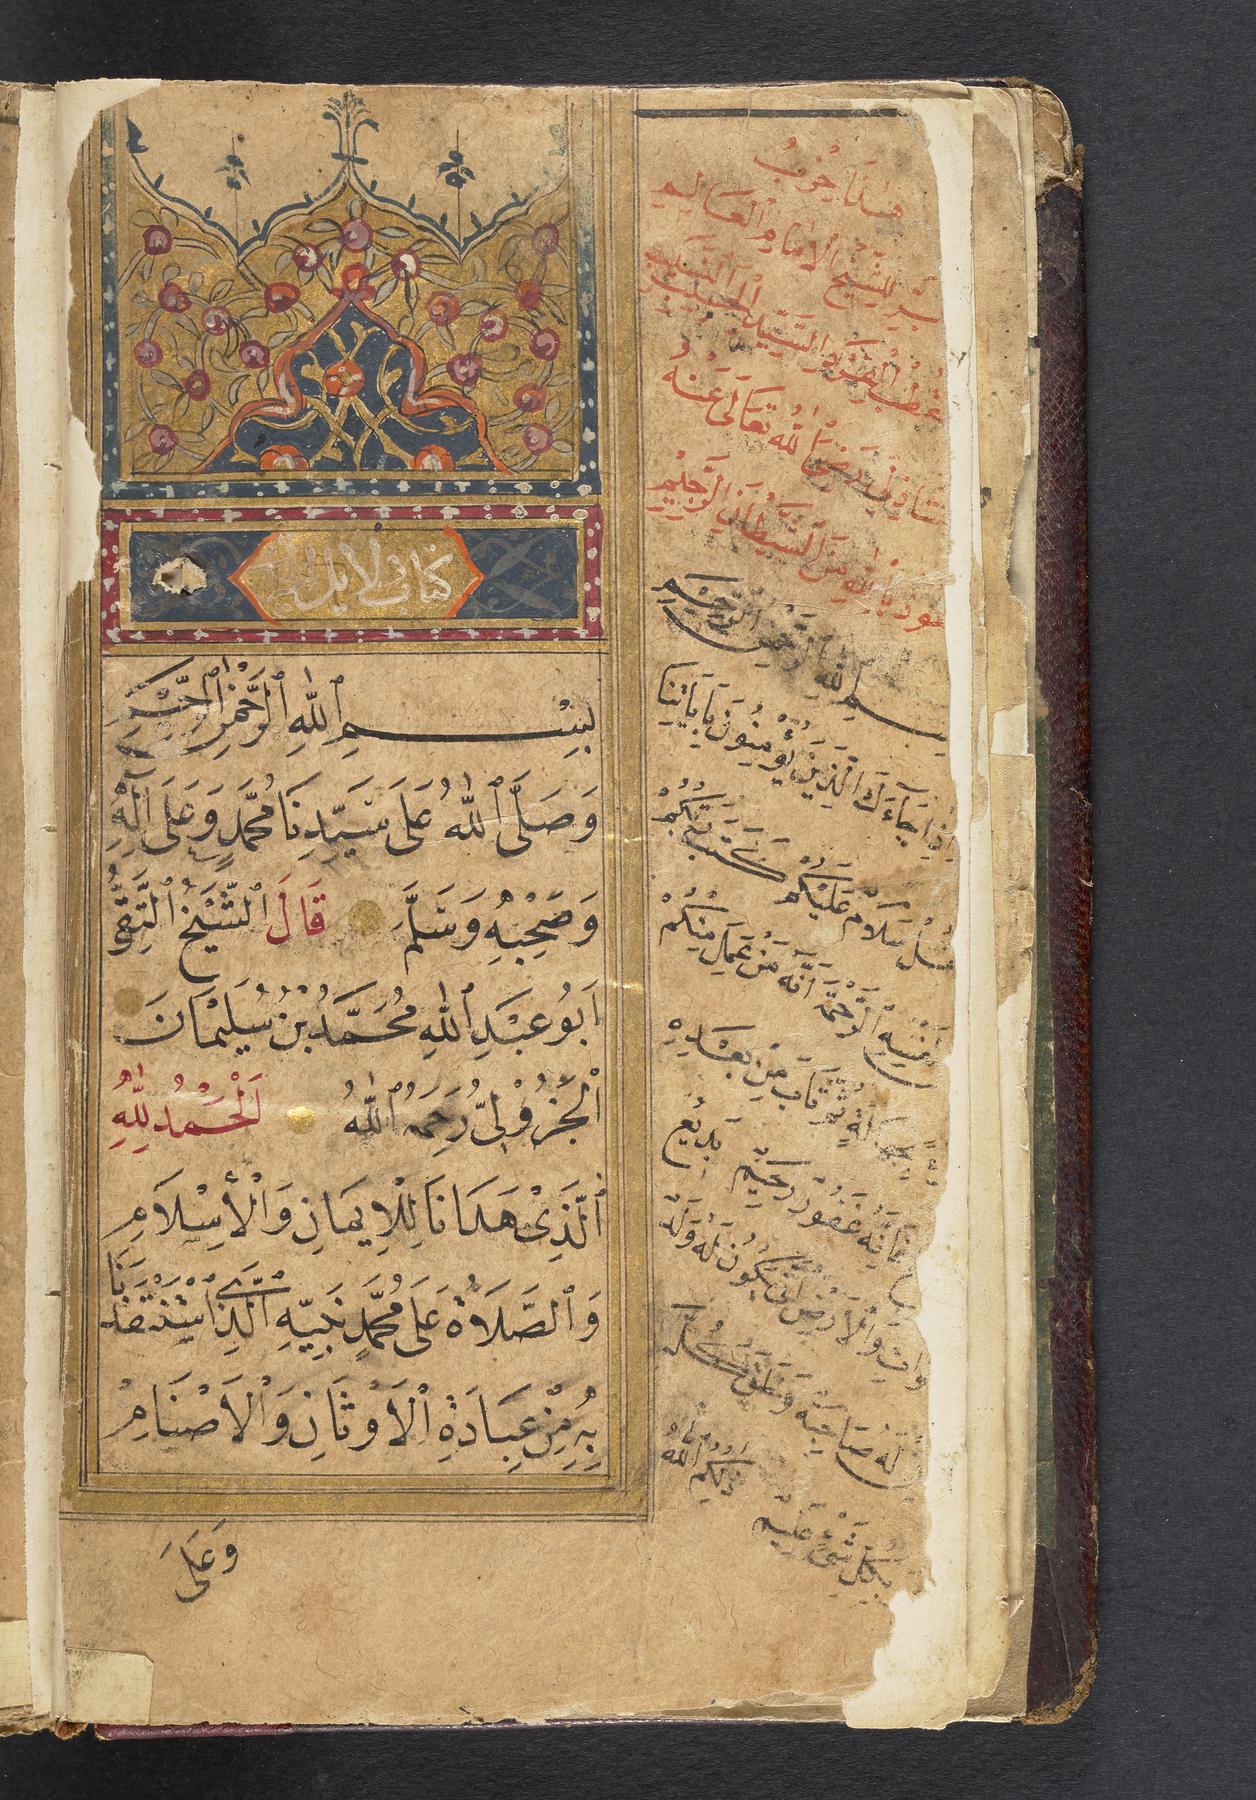 كتاب دلايل الخيرات
بِسْمِ ٱللّٰهِ ٱلرَّحْمٰنِ ٱلرَّحِيمِ
وَصَلَّى ٱللّٰهُ عَلَى سَيِّدِنَا مُحَمَّدٍ وَعَلَى آلِهِ
وَصَحْبِهِ وَسَلَّمَ قَالَ ٱلشَّيْخُ ٱلتَّقِيُّ
اَبُو عَبْدِ ٱللّٰهِ مُحَمَّدُ بْنُ سُلَيْمَانَ
ٱلْجَزُوْلِيُّ رَحِمَهُ ٱللّٰهُ اَلْحَمْدُ لِلّٰهِ
ٱلَّذِىْ هَدَانَا لِلْاِيمَانِ وَالْأِسْلَامِ
وَٱلصَّلَاةُ عَلَى مُحَمَّدٍ نَبِيِّهِ ٱلَّذِى ٱسْتَنْقَذَنَا
بِهِ مِنْ عِبَادَةِ ٱلْاَوْثَانِ وَالْاَصْنَامِ
وَعَلَى
هٰذَا حِزْبُ
للشَّيْخِ الْاِمَامِ الْعَالِمِ
السَّيِّدِ
رَضِىَ اللّٰهُ تَعَالَى عَنْهُ
بِاللّٰهِ مِنَ الشَّيْطَانِ الرَّجِيْمِ
بِسْمِ اللّٰهِ الرَّحْمٰنِ الرَّحِيْمِ
وَاِذَا جَآءَكَ الَّذِيْنَ يُؤْمِنُونَ بِاٰيَاتِنَا
فَقُلْ سَلَامٌ عَلَيْكُمْ كَتَبَ رَبُّكُمْ
نَفْسِهِ الرَّحْمَةَ اَنَّهُ مَنْ عَمِلَ مِنْكُمْ
بِجَهَالَةٍ ثُمَّ تَابَ مِنْ بَعْدِهِ
فَاَنَّهُ غَفُوْرٌ رَحِيْمٌ بَدِيْعُ
وَالْاَرْضِ اَنّٰى يَكُوْنُ لَهُ وَلَدٌ
لَهُ صَاحِبَةٌ وَخَلَقَ كُلَّ
ذٰلِكُمُ اللّٰهُ
بِكُلِّ شَىْءٍ عَلِيْمٌ